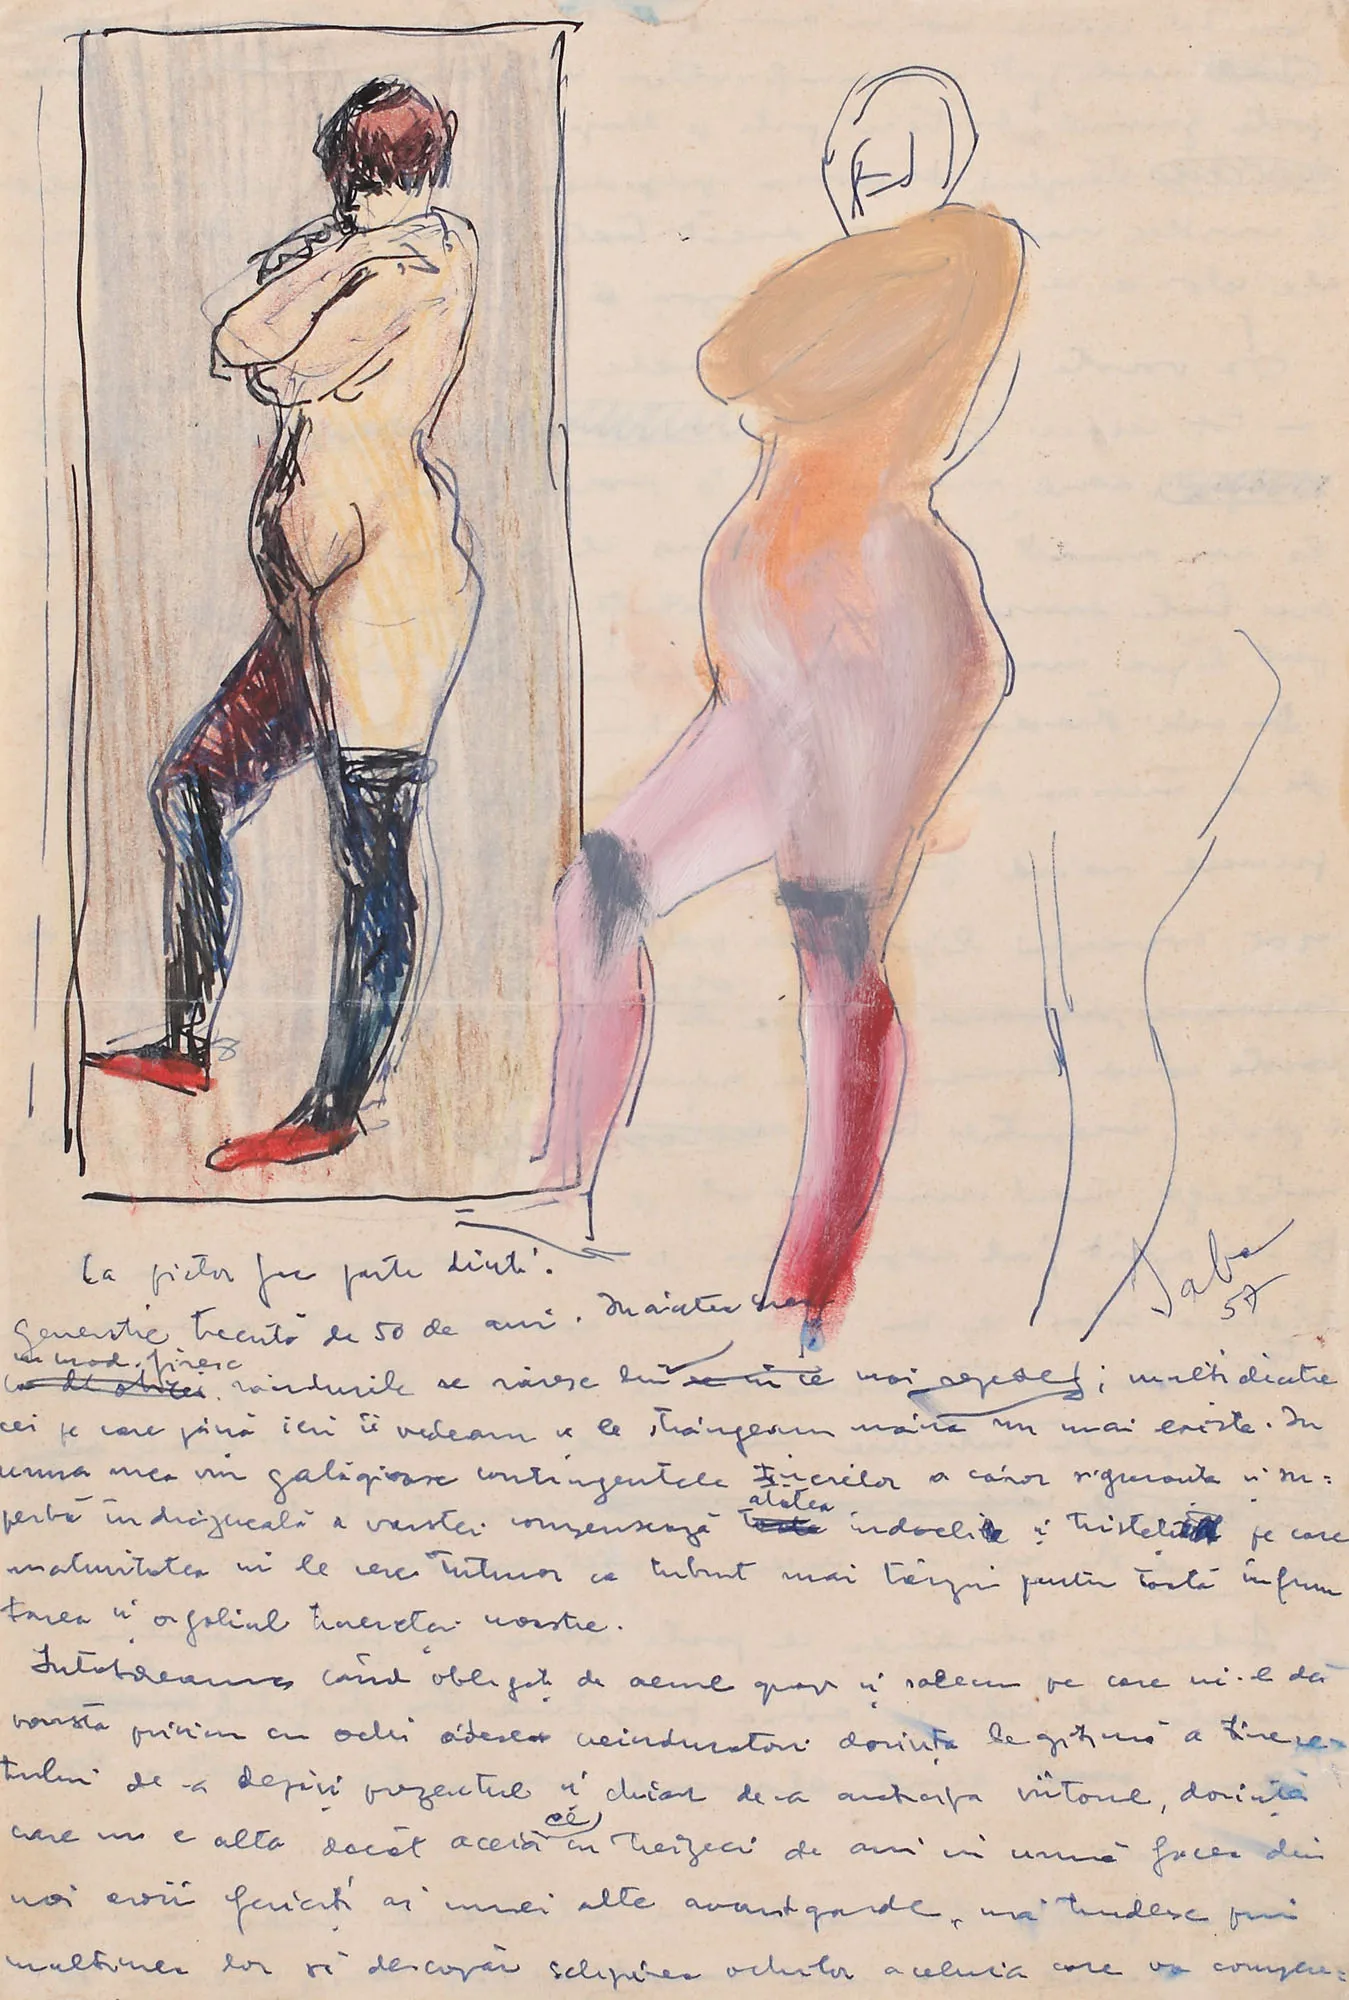 Jaba
57
Ca pictor fac parte dintr'
generație trecută de 50 de ani. Înaintea mea
în mod firesc
ca de obicei rândurile se răresc din ce în ce mai repede; mulți dintre
cei pe care până ieri îi vedeam și le strângeam mâna nu mai există. În
urma mea vin gălăgioase contingentele tinerilor a căror siguranță și su=
perbă îndrăzneală a vârstei compensează
atâtea
toate îndoieli și tristeți pe care
maturitatea ni le cere tuturor ca tribut mai târziu pentru toată înfrun
tarea și orgoliul tinereței noastre.
Întotdeauna când obligați de aerul grav și solemn pe care ni-l dă
vârsta privim cu ochi adesea neîndurători dorința legitimă a tinere=
tului de a depăși prezentul și chiar de-a anticipa viitorul, dorință
care nu e alta decât aceia
ce
cu treizeci de ani în urmă făcea din
noi eroii fericiți ai unei alte avantgarde, mă gândesc prin
mulțimea lor să descopăr sclipirea ochilor aceluia care va